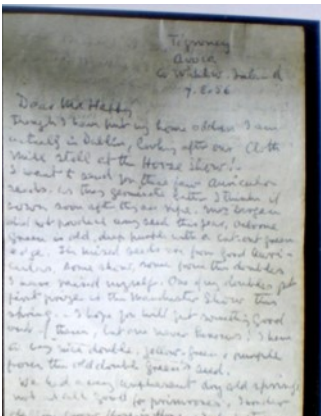 Tigroney
Avoca
Co Wicklow. Ireland
7. 8. 56
Dear Mr
Though I have put my home address I am
actually in Dublin, looking after our Cloth
Mill stall at the Horse Show!
I want to send you these few Auricula
seeds. as they germinate better I think if
sown soon after they are ripe. Mrs
did not produce any seed this year,
green is old, deep purple with a cut-out green
edge. The mixed seeds are from good Auri-
culas. Some show, some from the doubles
I have raised myself. One of my doubles got
first prize at the Manchester Show this
spring. I hope you will get something good
out of them, but one never knows! I have
a very nice double, yellow, green & purple
from the old double green's seed.
We had a very unpleasant dry old spring
not at all good for primroses,